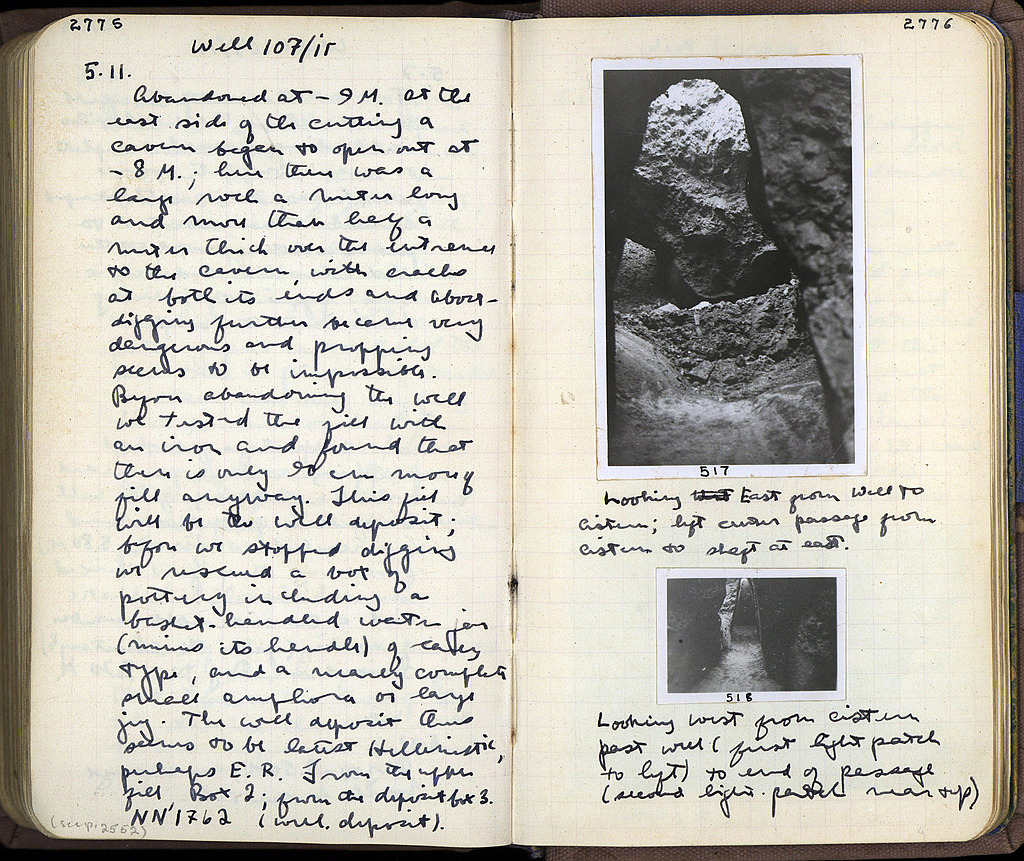 2775
Well 107/ir
5.11.
Abandoned at -9 M. at the
east side of the cutting a
cavern began to open out at
-8 M.; here there was a
large rock a meter long
and more than half a
meter thick over the entrance
to the cavern with cracks
at both its ends and above -
digging further became very
dangerous and propping
seems to be impossible.
Before abandoning the well
we tested the fill with
an iron and found that
there is only 50 cm more of
fill anyway. This fill
will be the well deposit;
before we stopped digging
we rescued a box of
pottery including a
basket-handled water jar
(minus its handle) of early
type, and a nearly complete
small amphora or large
jug. The well deposit thus
seems to be latest Hellenistic,
perhaps E.R. From the upper
fill, Box 2; from the deposit box 3.
NN 1762 (well deposit).
(see p. 2552)
2776
517
Looking East from Well to
cistern; left center passage from
cistern to shaft at east.
518
Looking west from cistern
past well (first light patch
to left) to end of passage
(second light patch near top)